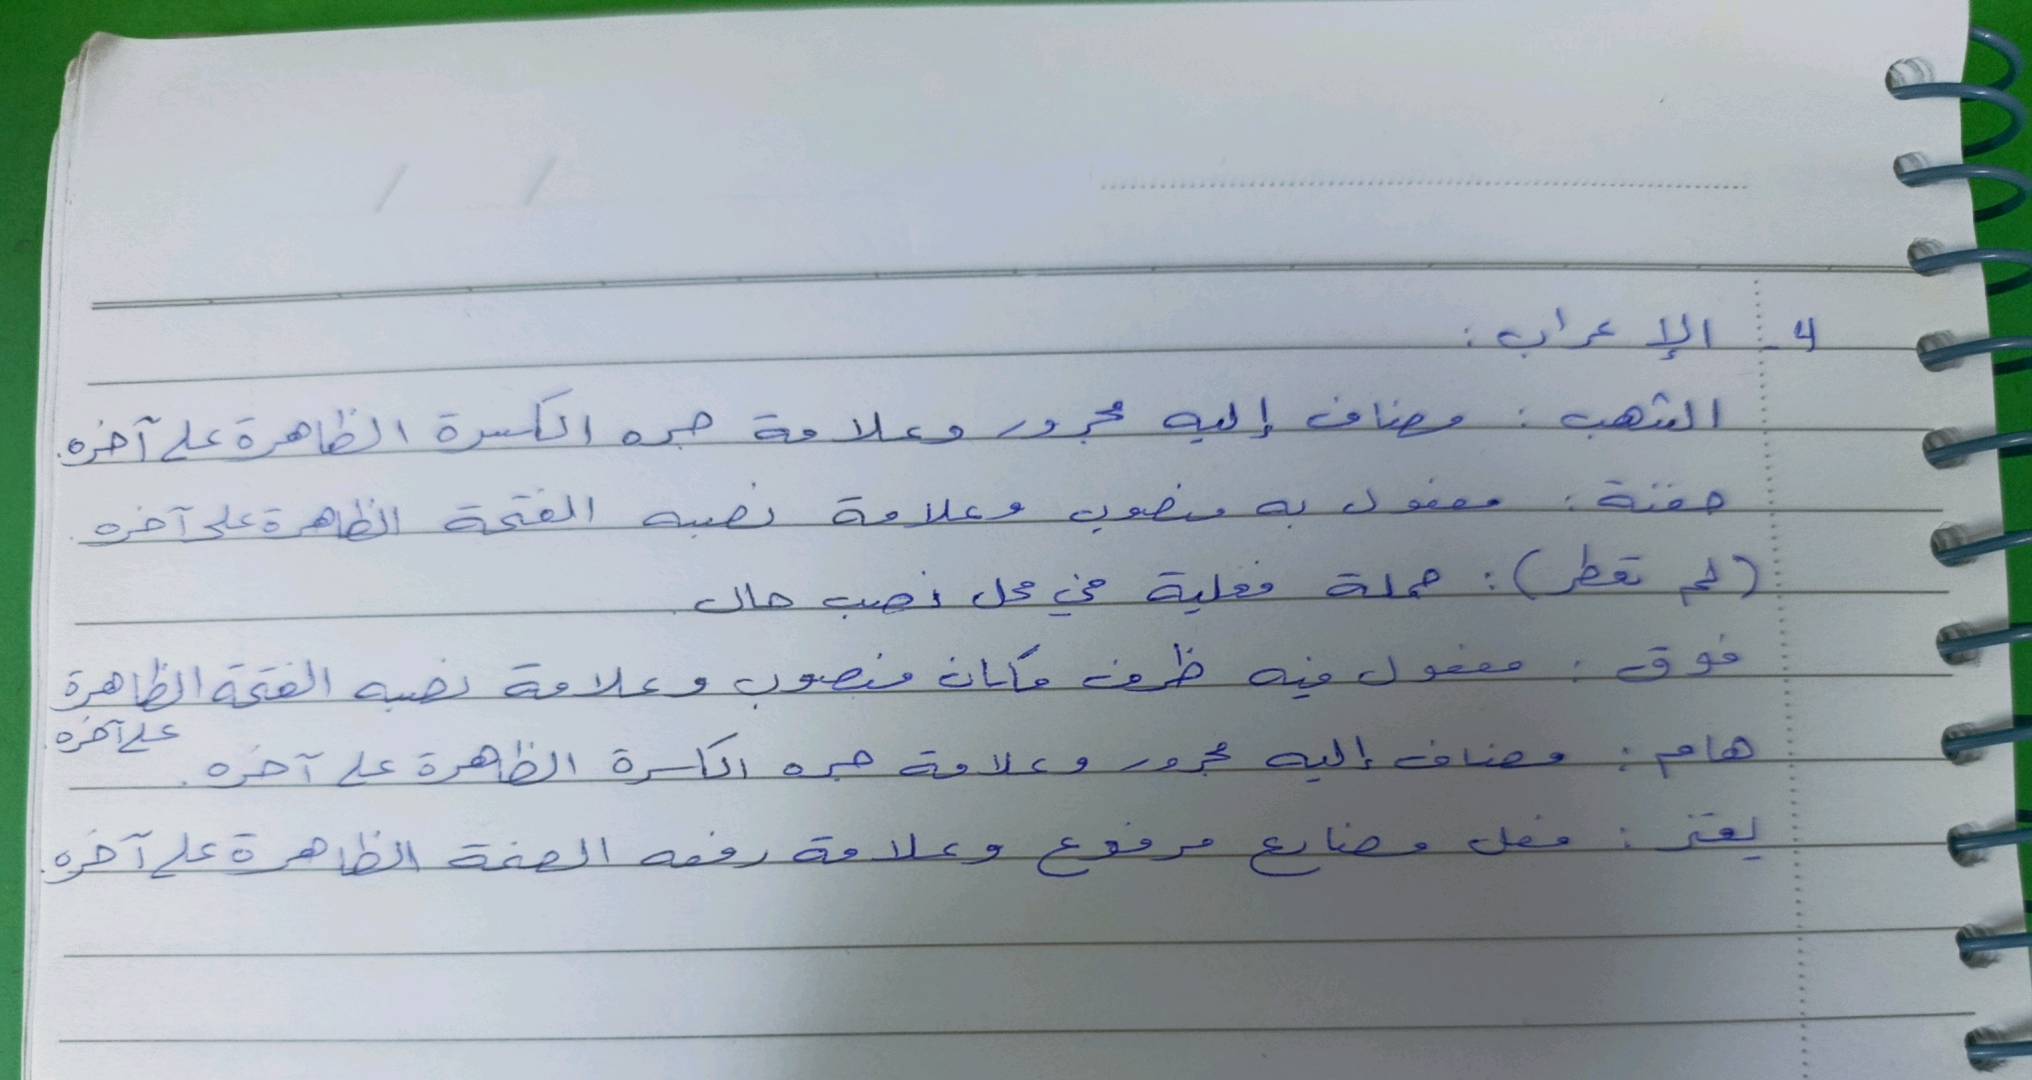 4 - الإعراب :
الشهب : مضاف إليه مجرور وعلامة جره الكسرة الظاهرة على آخره.
حفنة : مفعول به منصوب وعلامة نصبه الفتحة الظاهرة على آخره.
(لم تقطر) : جملة فعلية في محل نصب حال.
فوق : مفعول فيه ظرف مكان منصوب وعلامة نصبه الفتحة الظاهرة
على آخره.
هام : مضاف إليه مجرور وعلامة جره الكسرة الظاهرة على آخره.
: فعل مضارع مرفوع وعلامة رفعه الضمة الظاهرة على آخره.